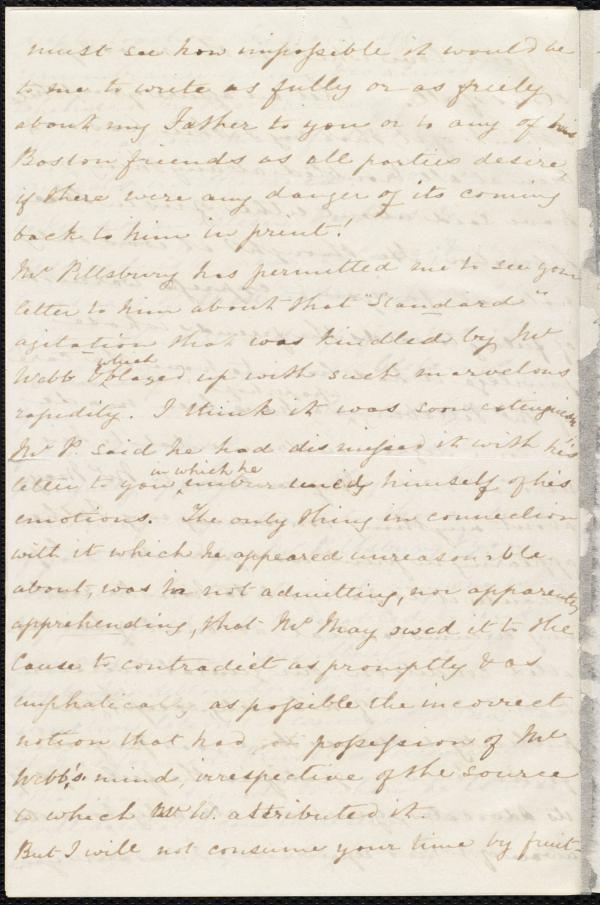 must see how impossible it would be
to me to write as fully or as freely
about my Father to you or to any of his
Boston friends as all parties desire,
if there were any danger of its coming
back to him in print!
Mr Pillsbury has permitted me to see your
letter to him about that "Standard"
agitation that was kindled by Mr
Webb & which blazed up with such marvelous
rapidity. I think it was soon extinguished
Mr P. said he had dismissed it with his
letter to you, in which he himself of his
emotions. The only thing in connection
with it which he appeared unreasonable
about, was in not admitting, nor apparently
apprehending, that Mr May owed it to the
Cause to contradict as promptly & as
emphatically as possible the incorrect
notion that had possession of Mr
Webb's mind, irrespective of the source
to which Mr W. attributed it.
But I will not consume your time by fruit-